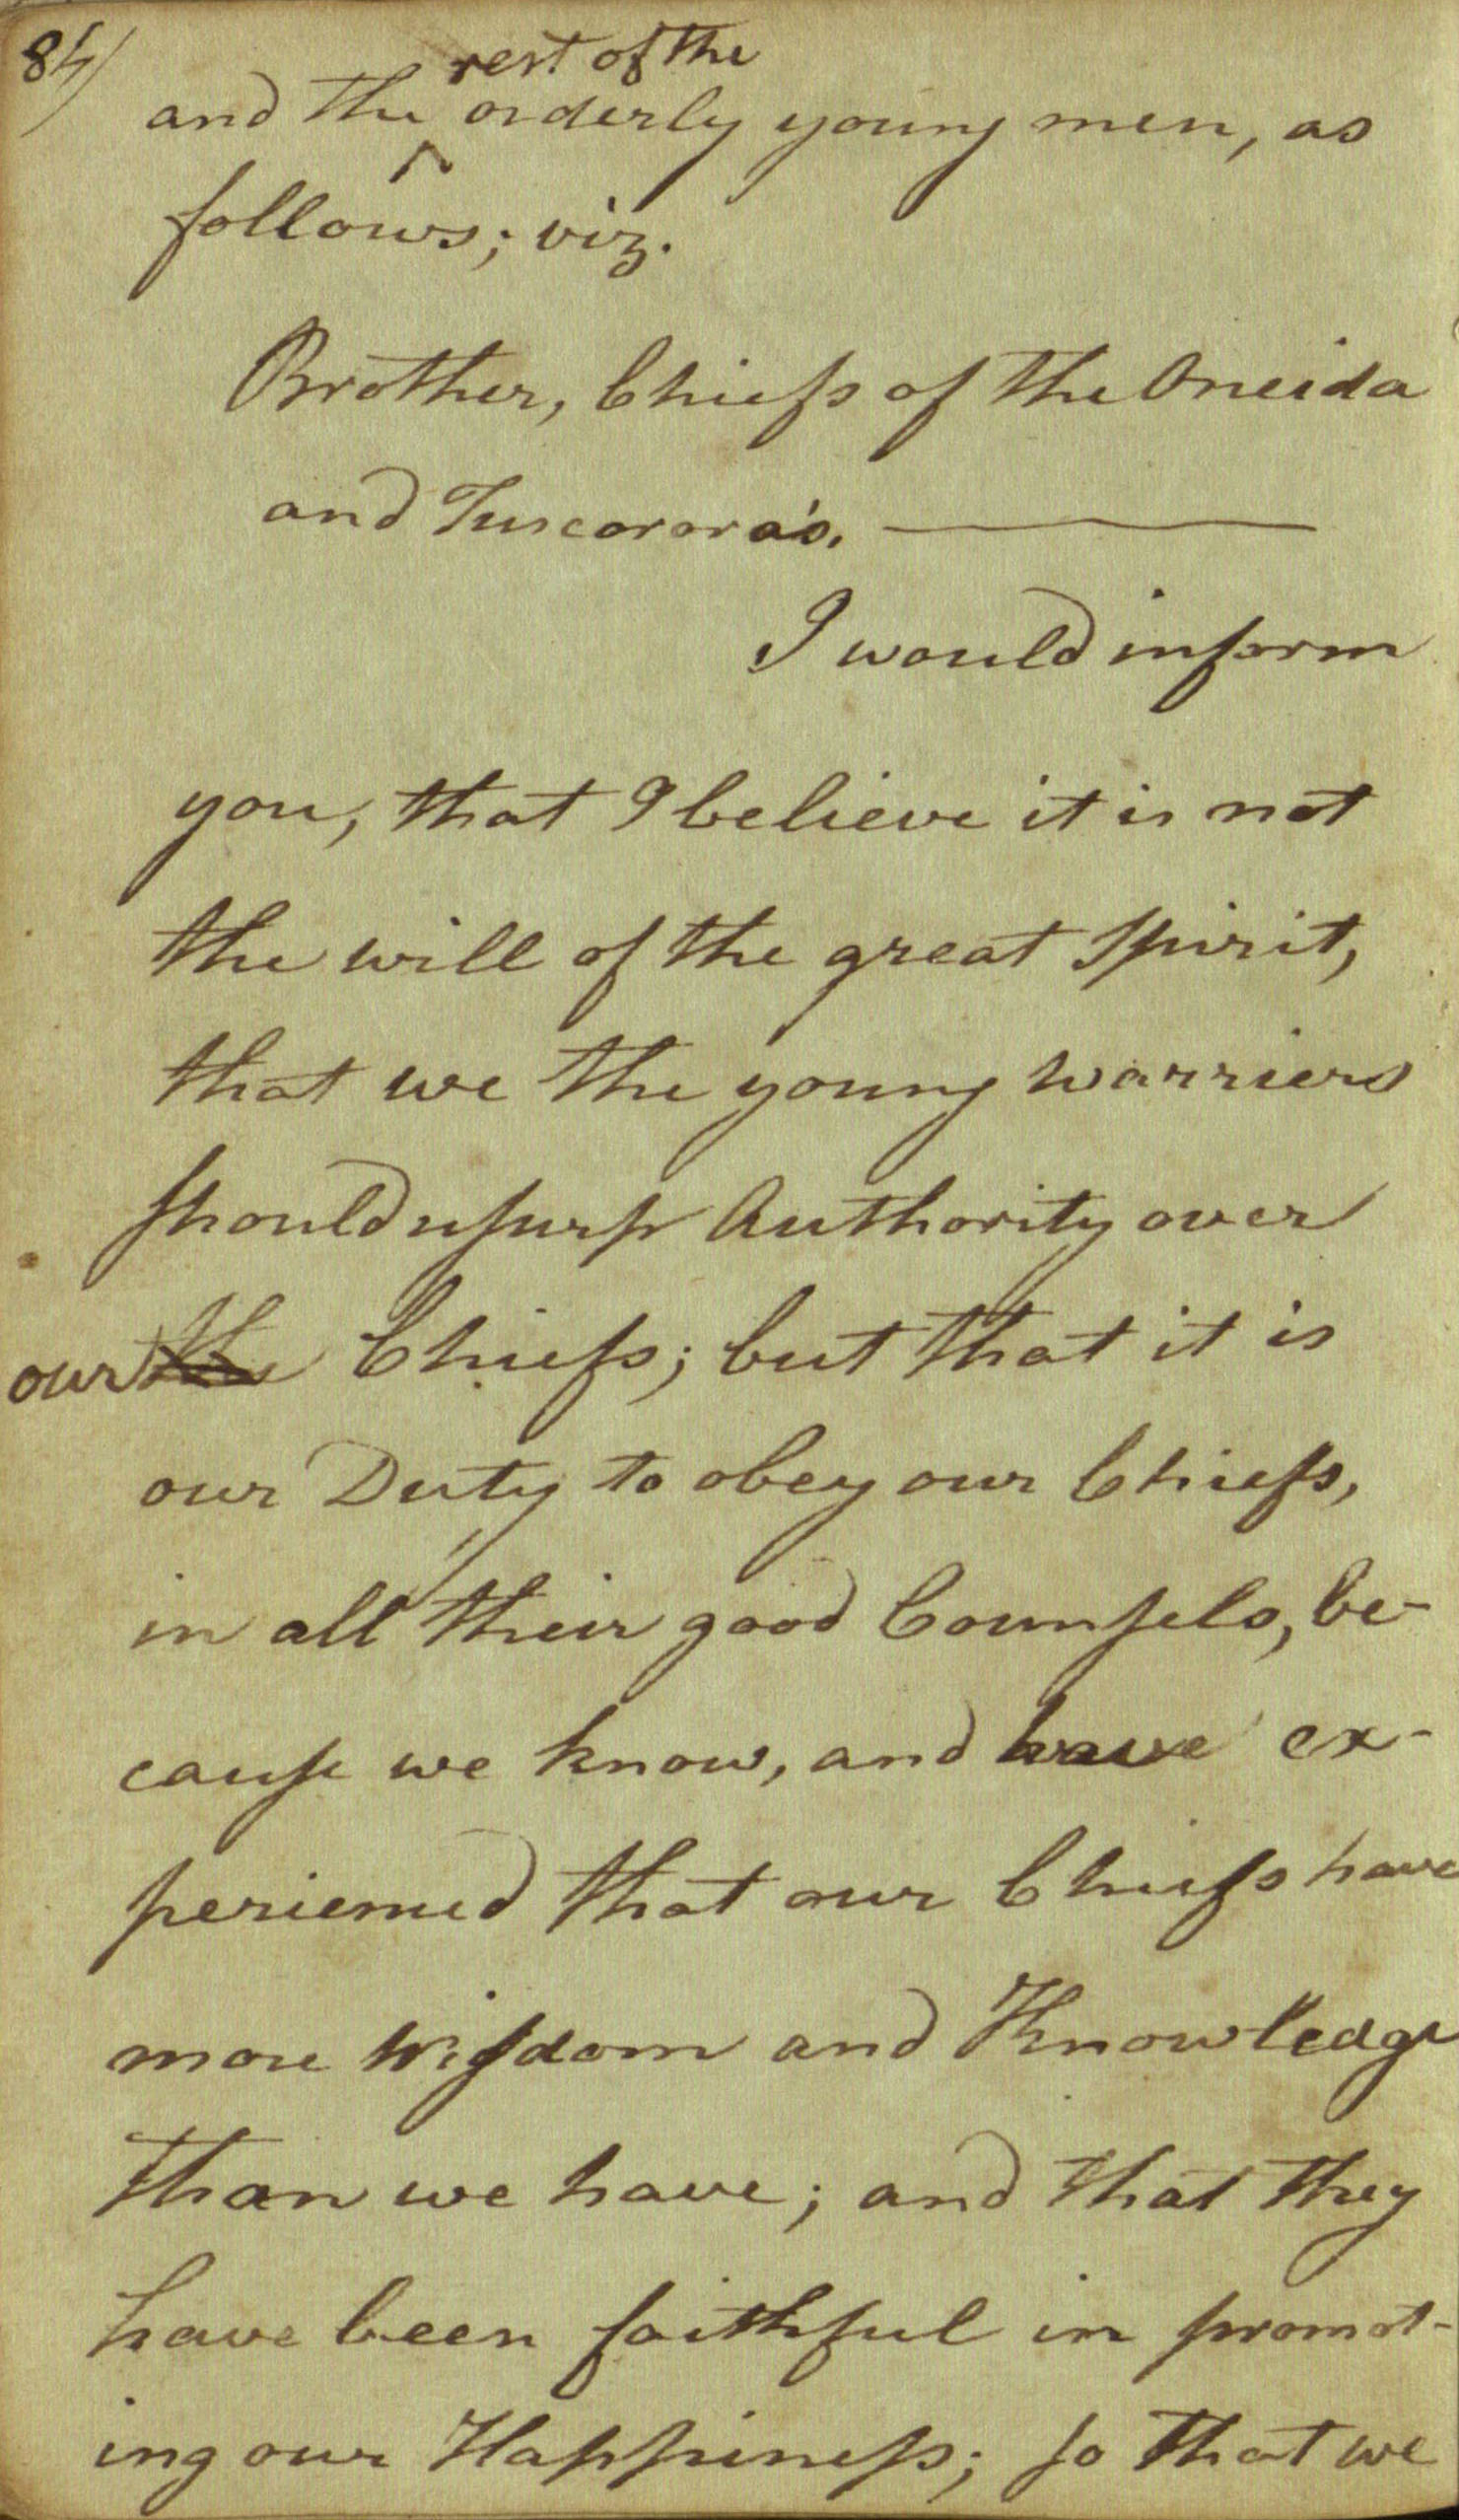 84
rest of the
and the ^ orderly young men, as
follows; viz.
Brother, Chiefs of the Oneida
and Tuscorora's. ———
I would inform
you, that I believe it is not
the will of the great Spirit,
that we the young warriers
should usurp Authority over
our the Chiefs; but that it is
our Duty to obey our Chiefs,
in all their good Counsels, be-
cause we know, and have ex-
perienced that our Chiefs have
more Wisdom and Knowledge
than we have; and that they
have been faithful in promot-
ing our Happiness; so that we